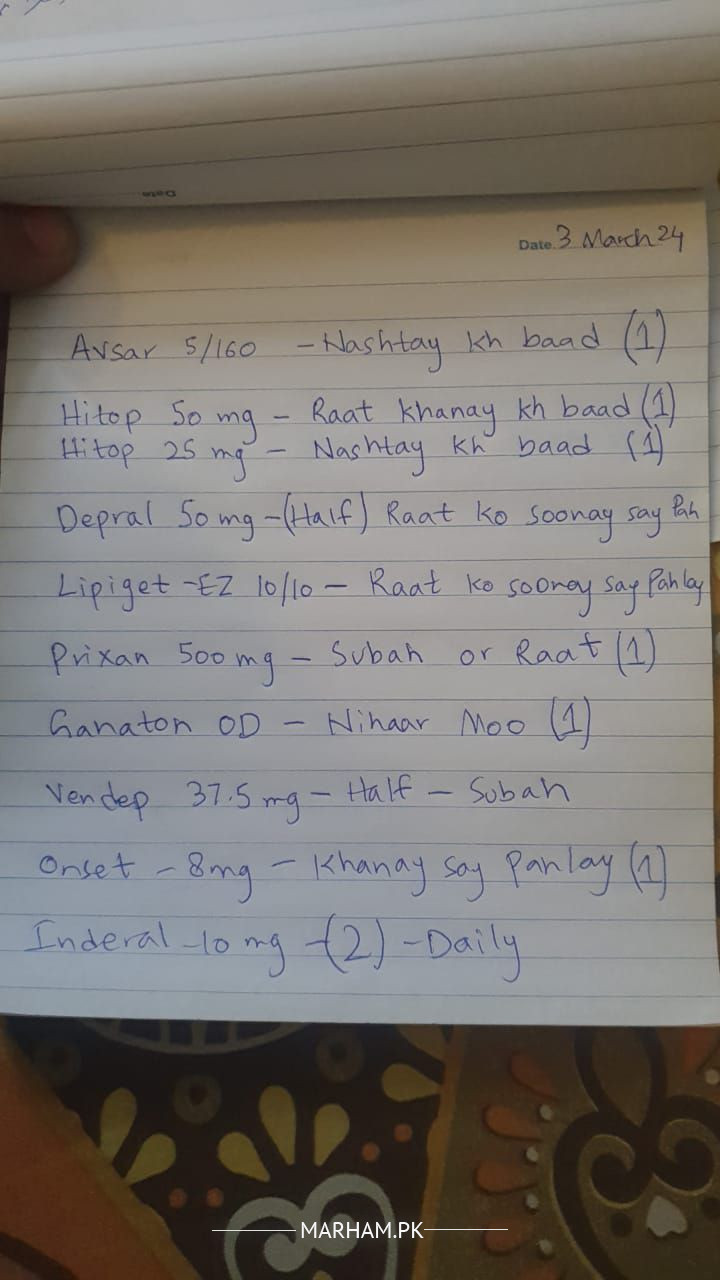 Date. 3 March 24
Avsar 5/160 - Nashtay kh baad (1)
Hitop 50 mg - Raat khanay kh baad (1)
Hitop 25 mg - Nashtay kh baad (1)
Depral 50 mg - (Half) Raat ko soonay say Pah
Lipiget -EZ 10/10 - Raat ko sooney say Pahlay
Prixan 500 mg - Subah or Raat (1)
Ganaton OD - Nihaar Moo (1)
Vendep 37.5 mg - Half - Subah
Onset - 8mg - Khanay say Pahlay (1)
Inderal - 10 mg - (2) - Daily
MARHAM.PK